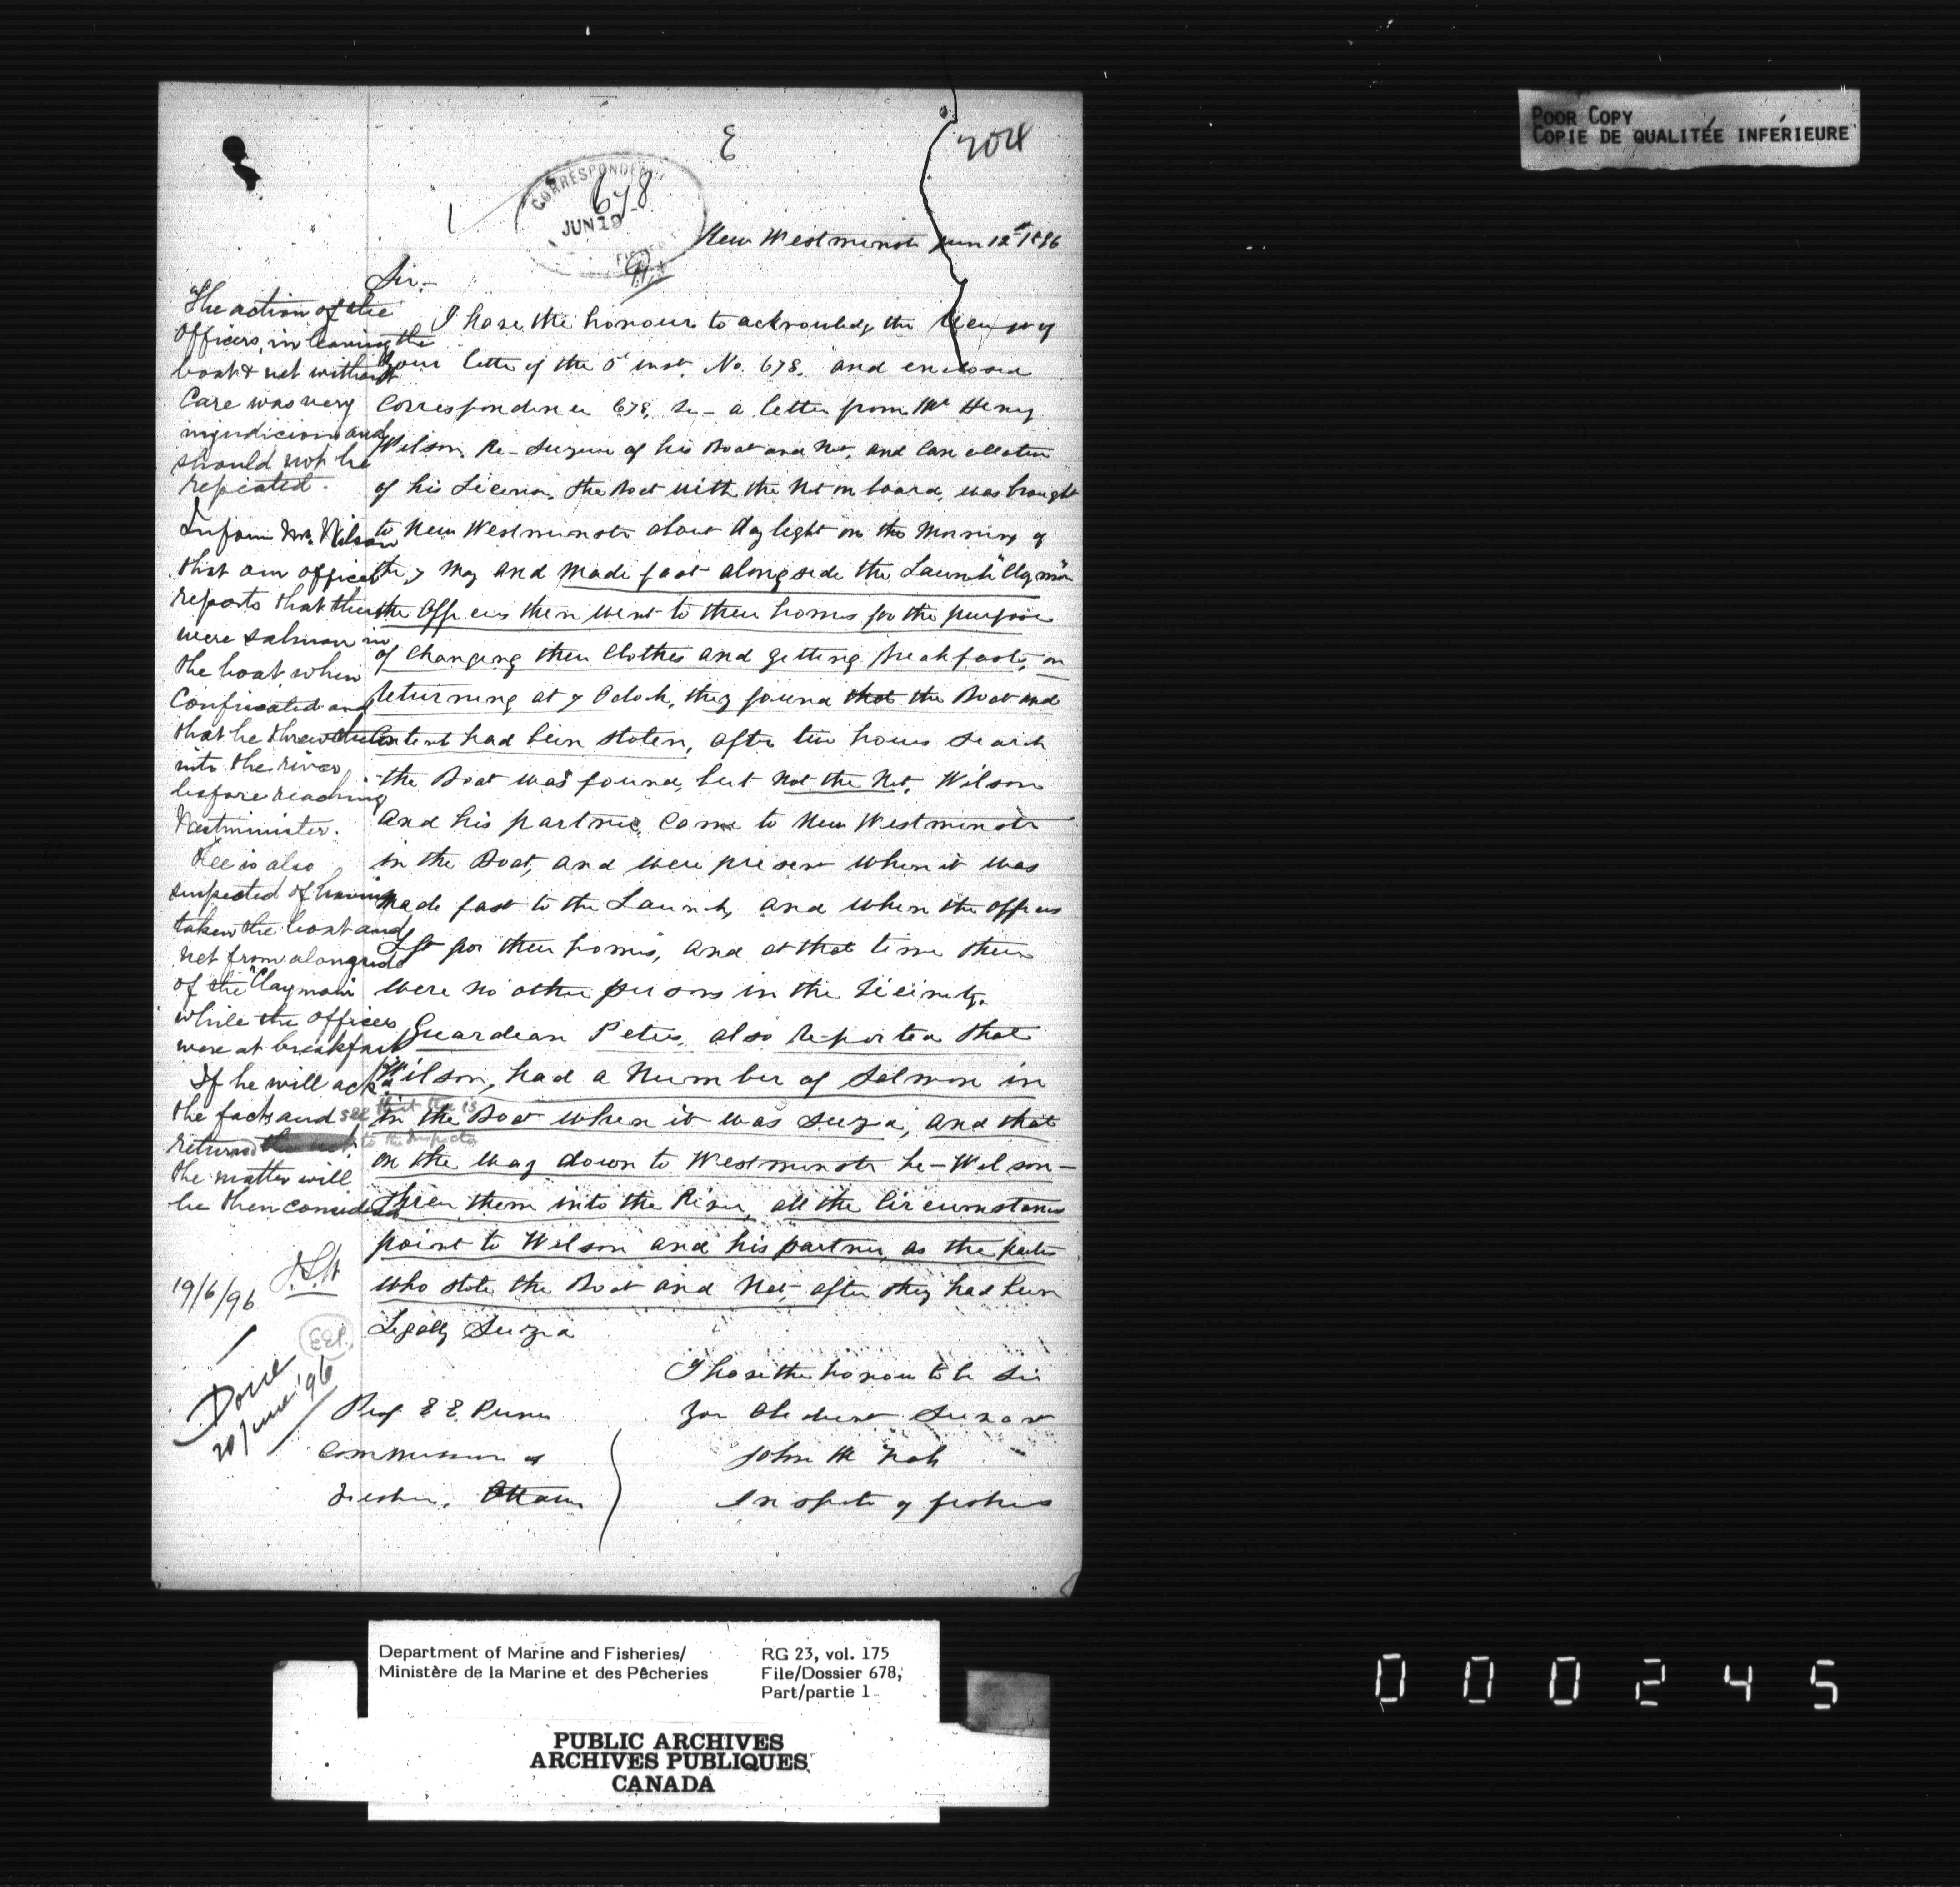 POOR COPY
COPIE DE QUALITÉE INFÉRIEURE
E
204
CORRESPONDENCE
678
JUN 19
New Westminster Jun 12th 1896
Sir,-
I have the honour to acknowledge the receipt of
your letter of the 5 inst. No. 678, and enclosed
Correspondence 678, a letter from Mr Henry
Wilson, Re-Seizure of his Boat and Net, and Cancellation
of his Licence. the Boat with the Net on board, was brought
to New Westminster about day light on the Morning of
the 7 May and made fast alongside the Launch
the Officers then went to their homes for the purpose
of changing their Clothes and getting breakfast, on
returning at 7 Oclock, they found that the Boat and
Content had been stolen, after two hours search
the Boat was found, but not the Net, Wilson
and his partner came to New Westminster
in the Boat, and were present when it was
made fast to the Launch, and when the officers
Left for their homes, and at that time there
were no other persons in the vicinity.
Guardian Peters, also Reported that
Wilson, had a Number of Salmon in
in the Boat when it was Seized, and that
on the way down to Westminster he - Wilson -
threw them into the River, all the Circumstances
point to Wilson and his partner, as the parties
who stole the Boat and Net, after they had been
Legally Seized
I have the honour to be Sir
Your Obedient Servant
John M Nab
Inspector of fisheries
Prof E E. Prince
Commissioner of
Fisheries, Ottawa
The action of the
Officers, in leaving the
boat & net without
Care was very
injudicious and
should not be
repeated.
Inform Mr. Wilson
that our officer
reports that there
were salmon in
the boat when
Confiscated and
that he threw them
into the river
before reaching
Westminster.
He is also
suspected of having
taken the boat and
net from alongside
of the "Claymore"
while the officers
were at breakfast
If he will ack.
the facts and see that the is
returned to the Inspector
the matter will
be then considered
19/6/96
EEP.
Done
20 June '96
Department of Marine and Fisheries/
Ministère de la Marine et des Pêcheries
RG 23, vol. 175
File/Dossier 678,
Part/partie 1
PUBLIC ARCHIVES
ARCHIVES PUBLIQUES
CANADA
000245